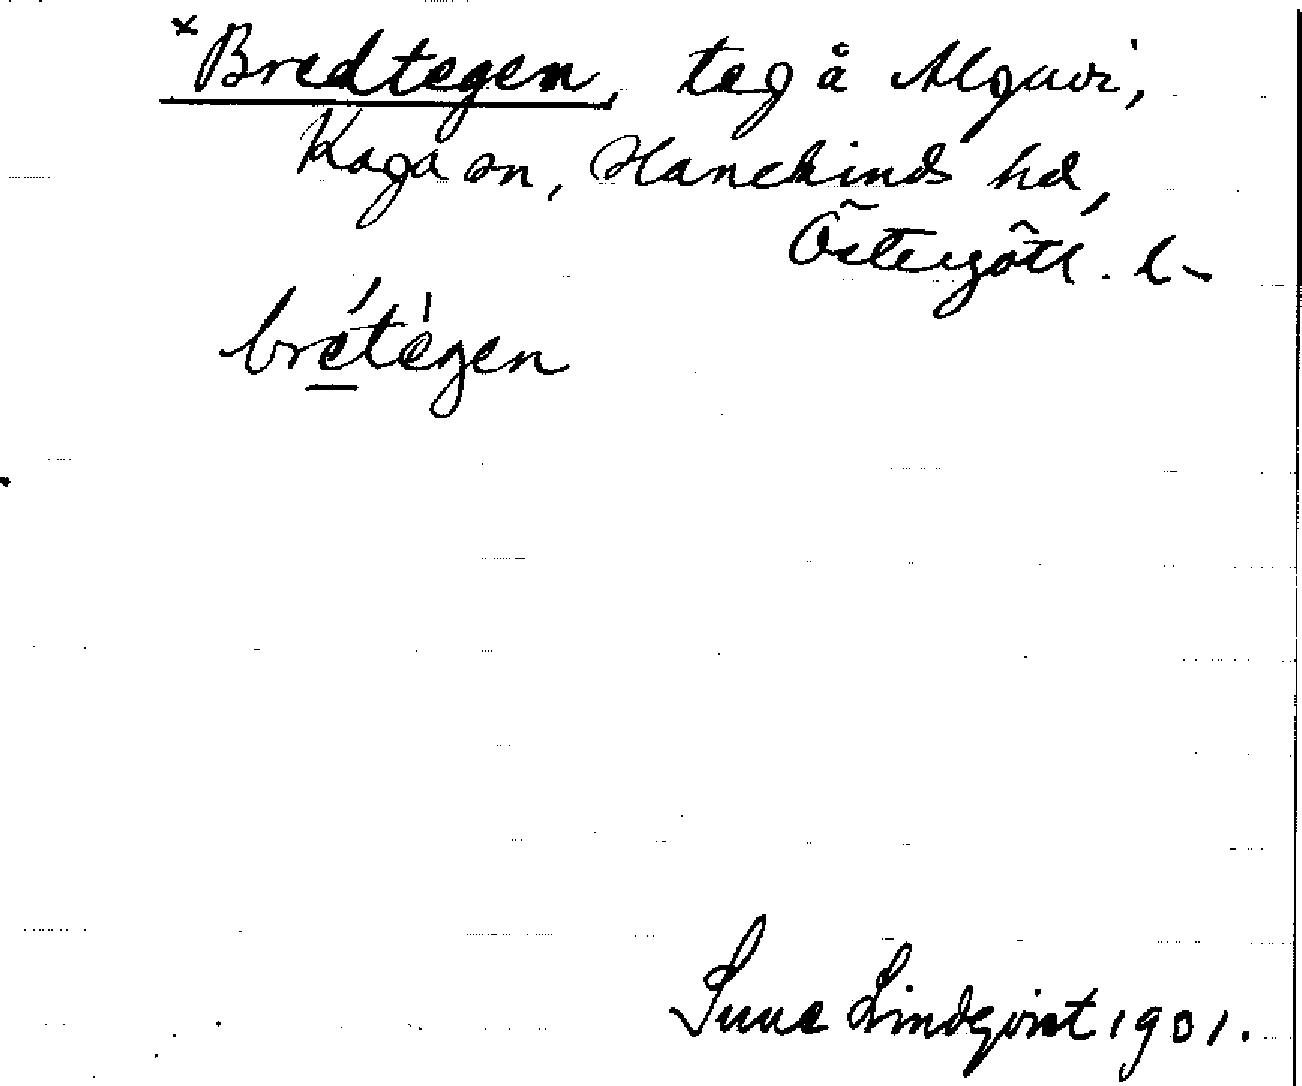 *Bredtegen, teg å Algutvi,
Kaga sn, Hanekinds hd,
Östergötl. l-
brétègen
Sune Lindqvist 1901.